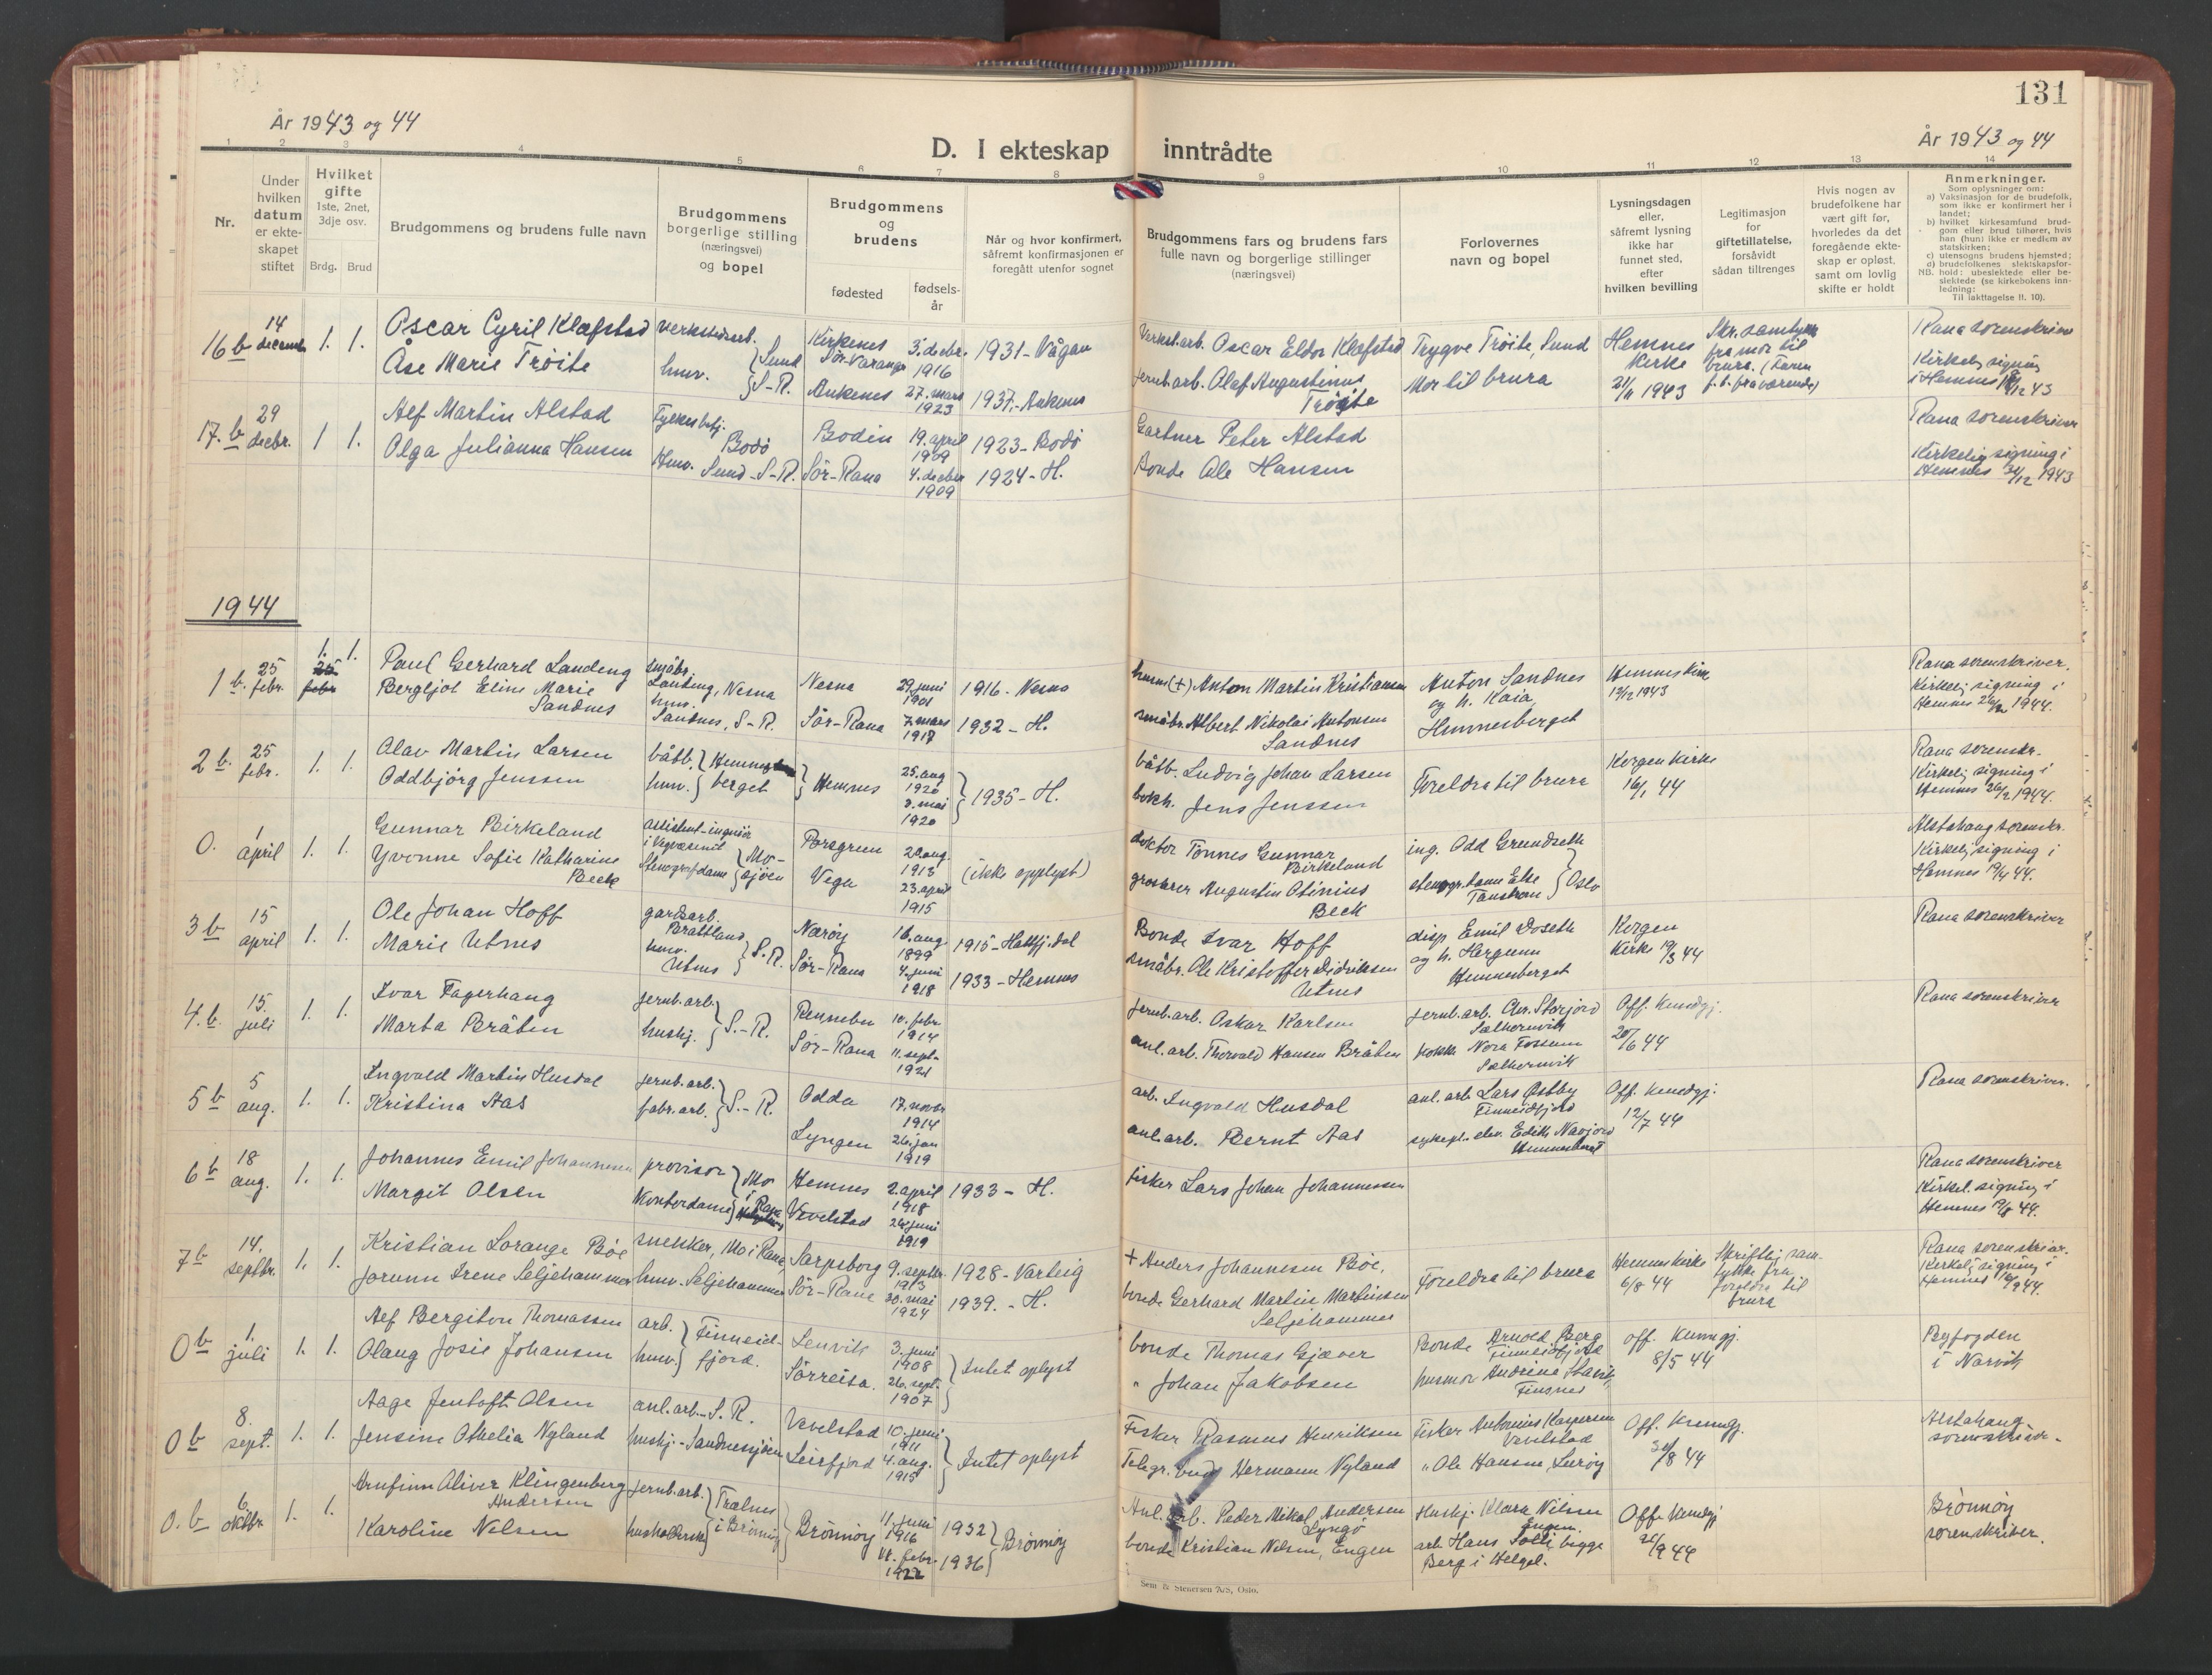 131
År 1943 og 44
D. I ekteskap inntrådte
År 1943 og 44
1 2 3 4 5 6 7 8 9 10 11 12 13 14
Nr.
Under hvilken datum er ekte-skapet stiftet
Hvilket gifte
1ste, 2net, 3dje osv.
Brdg. Brud
Brudgommens og brudens fulle navn
Brudgommens borgerlige stilling (næringsvei) og bopel
Brudgommens og brudens
fødested
fødsels-år
Når og hvor konfirmert, såfremt konfirmasjonen er foregått utenfor sognet
Brudgommens fars og brudens fars fulle navn og borgerlige stillinger (næringsvei)
Forlovernes navn og bopel
Lysningsdagen eller, såfremt lysning ikke har funnet sted, efter hvilken bevilling
Legitimasjon for giftetillatelse, forsåvidt sådan tiltrenges
Hvis nogen av brudefolkene har vært gift før, hvorledes da det foregående ekte-skap er opløst, samt om lovlig skifte er holdt
Anmerkninger.
Som oplysninger om:
a) Vaksinasjon for de brudefolk, som ikke er konfirmert her i landet;
b) hvilket kirkesamfund brud-gom eller brud tilhører, hvis han (hun) ikke er medlem av statskirken;
c) utensogns brudens hjemsted;
d) brudefolkenes slektskapsfor-hold: ubeslektede eller be-slektede (se kirkebokens inn-ledning:
NB.
Til iakttagelse II. 10).
16 b 14 decemb 1. 1. Oscar Cyril Klæfstad verkstedarb. Kirkenes Sør-Varanger 3. decbr. 1916 1931 - Vågan Verkst.arb. Oscar Eldor Klæfstad Trygve Trøite, Sund Hemnes kirke 21/11 1943 Skr. samtykke fra mor til brura. (Faren f.t. fraværende) Rana sorenskriver
Åse Marie Trøite hmv. Sund S-R. Ankenes 27. mars 1923 1937.-Ankenes Jernb.arb. Olaf Augustinus Trøite Mor til brura Kirkelig signing i Hemnes 12 43
17. b 29 decbr. 1 1. Alf Martin Alstad Fylkesbetj. Bodø Bodin 19. april 1909 1923 - Bodø Gartner Peter Alstad Rana sorenskriver
Olga Julianna Hansen Hmv. Sund - S-R. Sør-Rana 4. decbr 1909 1924 - H. Bonde Ole Hansen Kirkelig signing i Hemnes 12 1943
1944
1 b. 25 febr. 1. 1. Paul Gerhard Landeng småbr. Landeng, Nesna Nesna 29. juni 1901 1916 - Nesna Anton Martin Kristiansen Anton Sandnes og h. Kaia, Hemnesberget 12/12 1943 Rana sorenskriver.
Bergljot Eline Marie Sandnes hmv. Sandnes, S-R. Sør-Rana 7. mars 1917 1932 - H. småbr. Albert Nikolai Antonsen Sandnes Kirkelig signing i Hemnes 26/2 1944.
2 b. 25 febr. 1. 1. Olav Martin Larsen båtb. Hemnes-berget Hemnes 25. aug 1920 1935 - H. båtb. Ludvig Johan Larsen Foreldra til brura Korgen kirke 16/1 44 Rana sorenskr.
Oddbjørg Jenssen hmv. 8. mai 1920 Jens Jenssen Kirkelig signing i Hemnes 26/2 1944.
0. 1 april 1. 1. Gunnar Birkeland assistent-ingeniør i Vegvæsenet Mo-sjøen Porsgrunn 20. aug. 1913 (ikke opplyst) doktor Tønnes Gunnar Birkeland ing. Odd Grundseth Oslo Alstahaug sorenskr.
Yvonne Sofie Katharine Beck Stenografdame Vega 23. april 1915 grosserer Augustin Otinius Beck stenogr. dame Else Kirkelig signing i Hemnes 44.
3 b 15 april 1. 1. Ole Johan Hoff gardsarb. Brattland Nærøy 16. aug. 1899 1915 - Hattfj.dal Bonde Ivar Hoff disp Emil Doseth og h. Hergunn Hemnesberget Korgen kirke 19/3 44 Rana sorenskriver
Marie Utnes hmv. Utnes S.R. Sør-Rana 4. juni 1918 1933 - Hemnes småbr. Ole Kristoffer Didriksen Utnes
4. b. 15. juli 1. 1. Ivar Fagerhaug jernb.arb. S.-R. Rennebu 10. febr. 1914 Jernb.arb. Oskar Karlsen jernb.arb. Chr. Storjord Off. kunngj. 20/6 44 Rana sorenskriver
Marta Bråten hushj. Sør-Rana 11. sept. 1921 anl.arb. Thorvald Hansen Bråten kokke Nora Fossum
5 b 5 aug. 1. 1. Ingvald Martin Husdal jernb.arb. S.-R. Odda 17. novbr 1914 arb. Ingvald Husdal anl.arb. Lars Østby Finneidfjord Off. kunngj. 12/7 44 Rana sorenskriver.
Kristina Aas fabr.arb. Lyngen 26. jan 1919 anl.arb. Bernt Aas sykepl. elev. Edith Navjord Hemnesberget
6 b 18 aug. 1. 1. Johannes Emil Johannesen provisor Mo i Rana Hemnes 2. april 1918 1933 - H. fisker Lars Johan Johannessen Rana sorenskriver
Margit Olsen Kontordame Vevelstad 24. juni 1919 Kirkel. signing i Hemnes 19/8 44.
7 b 14. septbr. 1. 1. Kristian Lorange Bøe snekker, Mo i Rana, Sarpsborg 9. septbr 1913 1928 - Varteig + Anders Johannesen Bøe, Foreldra til brura Hemnes kirke 6/8 44 Skriftlig sam-tykke fra foreldre til brura Rana sorenskriver.
Jorunn Irene Seljehammer hmv. Seljehammer Sør-Rana 30. mai 1924 1939. - H. bonde Gerhard Martin Martinsen Seljehammer Kirkelig signing i Hemnes 1944.
0 b 1. juli 1. 1. Alf Bergiton Thomassen arb. Finneid-fjord. Lenvik 3. juni 1908 Intet oplyst bonde Thomas Gjæver Bonde Arnold Berg Finneidfjord off. kunngj. 8/5 44 Byfogden i Narvik
Olaug Josie Johansen hmv. Sørreisa. 26. sept. 1907 " Johan Jakobsen husmor Andrine
0 b 8. sept. 1. 1. Aage Jentoft Olsen anl.arb. - S. R. Vevelstad 10. juni 1911 Intet oplyst Fisker Rasmus Henriksen Fisker Antonius Kaspersen Vevelstad Off. kunngj. 8 44 Alstahaug sorenskriver
Jensine Othelia Nyland hushj. - Sandnessjøen Leirfjord 4. aug. 1915 Telegr.bud Hermann Nyland " Ole Hansen, Lurøy
0. b 6 oktbr. 1. 1. Arnfinn Oliver Klingenberg Andersen jernb.arb. Trælnes i Brønnøy Brønnøy 11. juni 1916 1932 Brønnøy Anl.arb. Peder Mikal Andersen Lyngø Hushj. Klara Nilsen Engen. Off. kunngj 9 44 Brønnøy sorenskriver.
Karoline Nilsen husholderske 18. febr. 1922 1936 bonde Kristian Nilsen, Engen arb. Hans Solli, begge Berg i Helgel.
Sem & Stenersen A/S, Oslo.